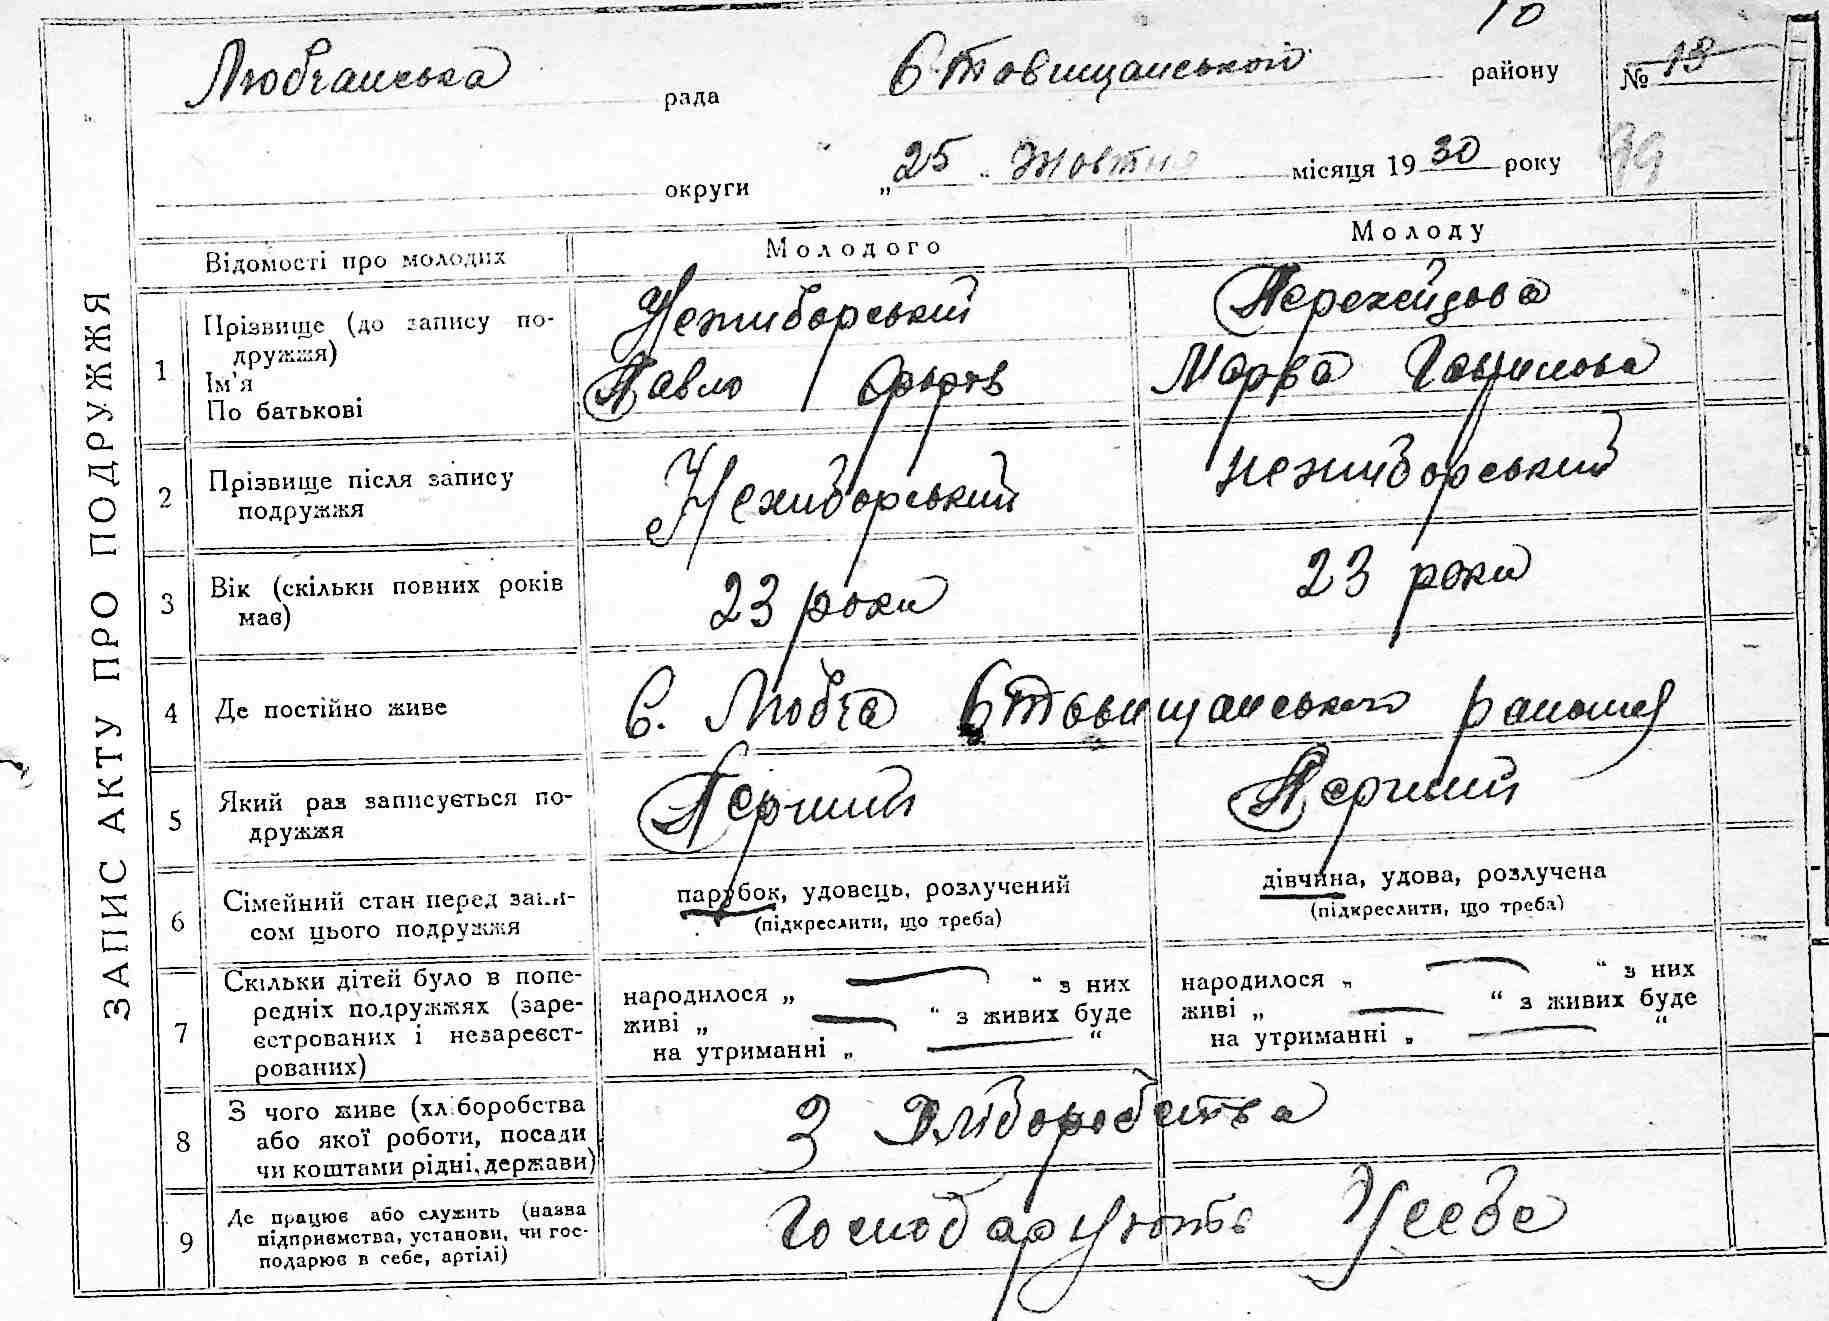 10
Любчанська рада Ставищанський району № 13
округи „25„ Жовтня місяця 1930 року 99
ЗАПИС АКТУ ПРО ПОДРУЖЖЯ
Відомості про молодих Молодого Молоду
1 Прізвище (до запису подружжя) Нежиборський
Ім'я
По батькові Павло Марва
2 Прізвище після запису подружжя Нежиборський Нежиборський
3 Вік (скільки повних років має) 23 роки 23 роки
4 Де постійно живе С. Любча Ставищанського району
5 Який раз записується подружжя Перший Перший
6 Сімейний стан перед записом цього подружжя парубок, удовець, розлучений дівчина, удова, розлучена
(підкреслити, що треба) (підкреслити, що треба)
7 Скільки дітей було в попередніх подружжях (зареєстрованих і незареєстрованих)
народилося „ — “ з них народилося „ — “ з них
живі „ — “ з живих буде живі „ — “ з живих буде
на утриманні „ — “ на утриманні „ — “
8 З чого живе (хліборобства або якої роботи, посади чи коштами рідні, держави) З Хліборобства
9 Де працює або служить (назва підприємства, установи, чи господарює в себе, артілі) Господарують У себе